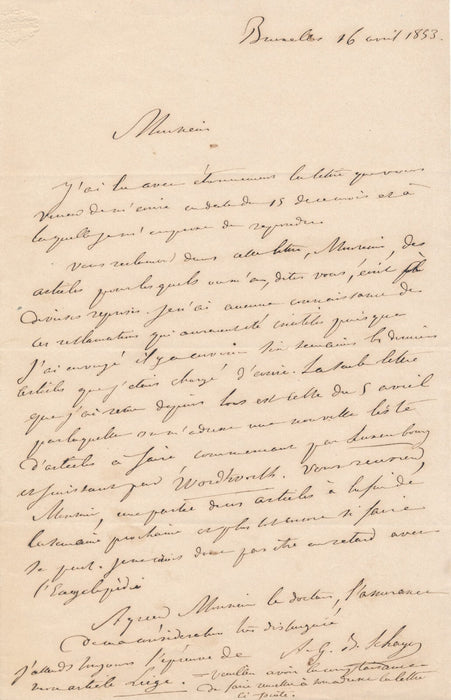 Bruxelles 16 avril 1853.
Monsieur
J'ai lu avec étonnement la lettre que vous
venez de m'écrire en date du 15 de ce mois et à
laquelle je m'empresse de repondre.
Vous reclamez dans cette lettre, Monsieur, des
articles pour lesquels on m'a, dites vous, écrit à
diverses reprises. Je n'ai aucune connaissance de
ces reclamations qui auraient été inutiles puisque
J'ai envoyé il y a environ six semaines les derniers
articles que j'étais chargé d'écrire. La seule lettre
que j'ai reçue depuis lors est celle du 5 avril
par laquelle on m'adresse une nouvelle liste
d'articles à faire commençant par Luxembourg
et finissant par Wordworth. Vous recevrez,
Monsieur, une partie de ces articles à la fin de
la semaine prochaine et plus tot encore si faire
se peut. Je ne suis donc pas être en retard avec
l'Encyclopédie
Agreez Monsieur le docteur, l'assurance
de ma considération très distinguée
A. G. B. Schayes
J'attends toujours l'épreuve de
mon article Liége. - veuillez avoir la complaisance
de faire remettre à son adresse la lettre
ci jointe.